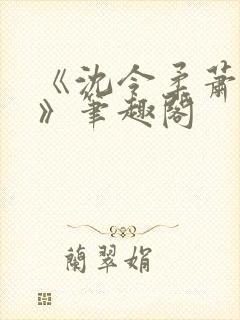 《沈令柔萧
》笔趣阁
蘭翠娟